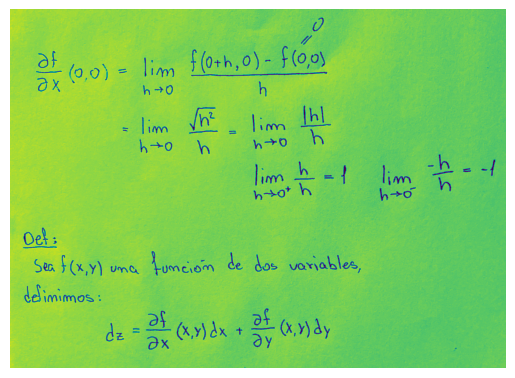 ∂f/∂x (0,0) = lim h→0 (f(0+h,0) - f(0,0))/h = 0
= lim h→0 √h²/h = lim h→0 |h|/h
lim h→0⁺ h/h = 1 lim h→0⁻ -h/h = -1
Def:
Sea f(x,y) una función de dos variables,
definimos:
dz = ∂f/∂x (x,y)dx + ∂f/∂y (x,y)dy